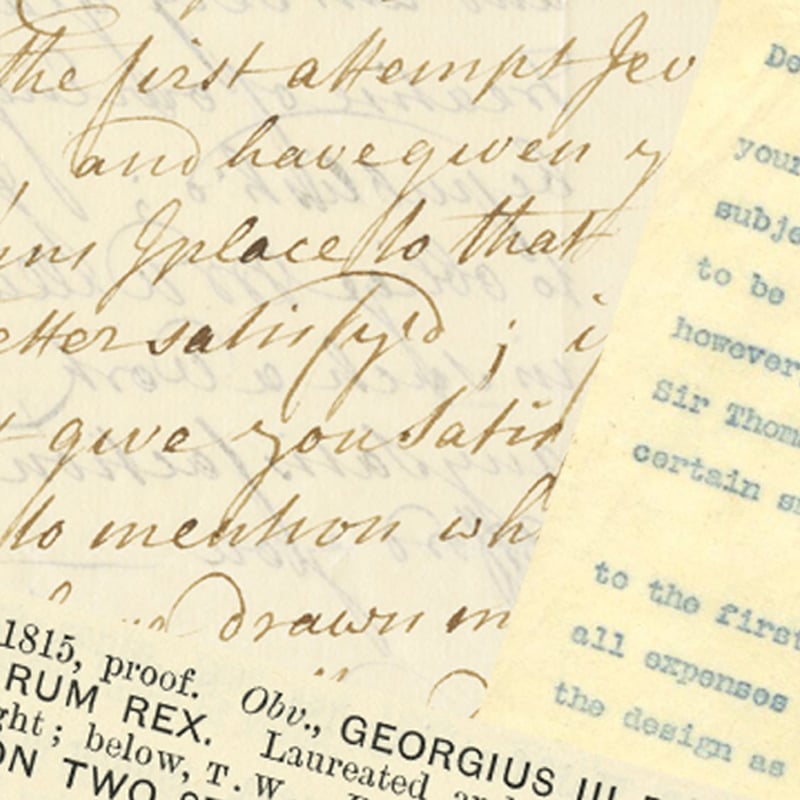 the first attempt
and have given y
place to that
etter satisfy'd ; i
give you Satis
to mention wh
drawn m
1815, proof. Obv., GEORGIUS III
RUM REX. Laureated
ght; below, T. W.
ON TWO
De
your
subje
to be
however
Sir Thom
certain s
to the first
all expenses
the design as